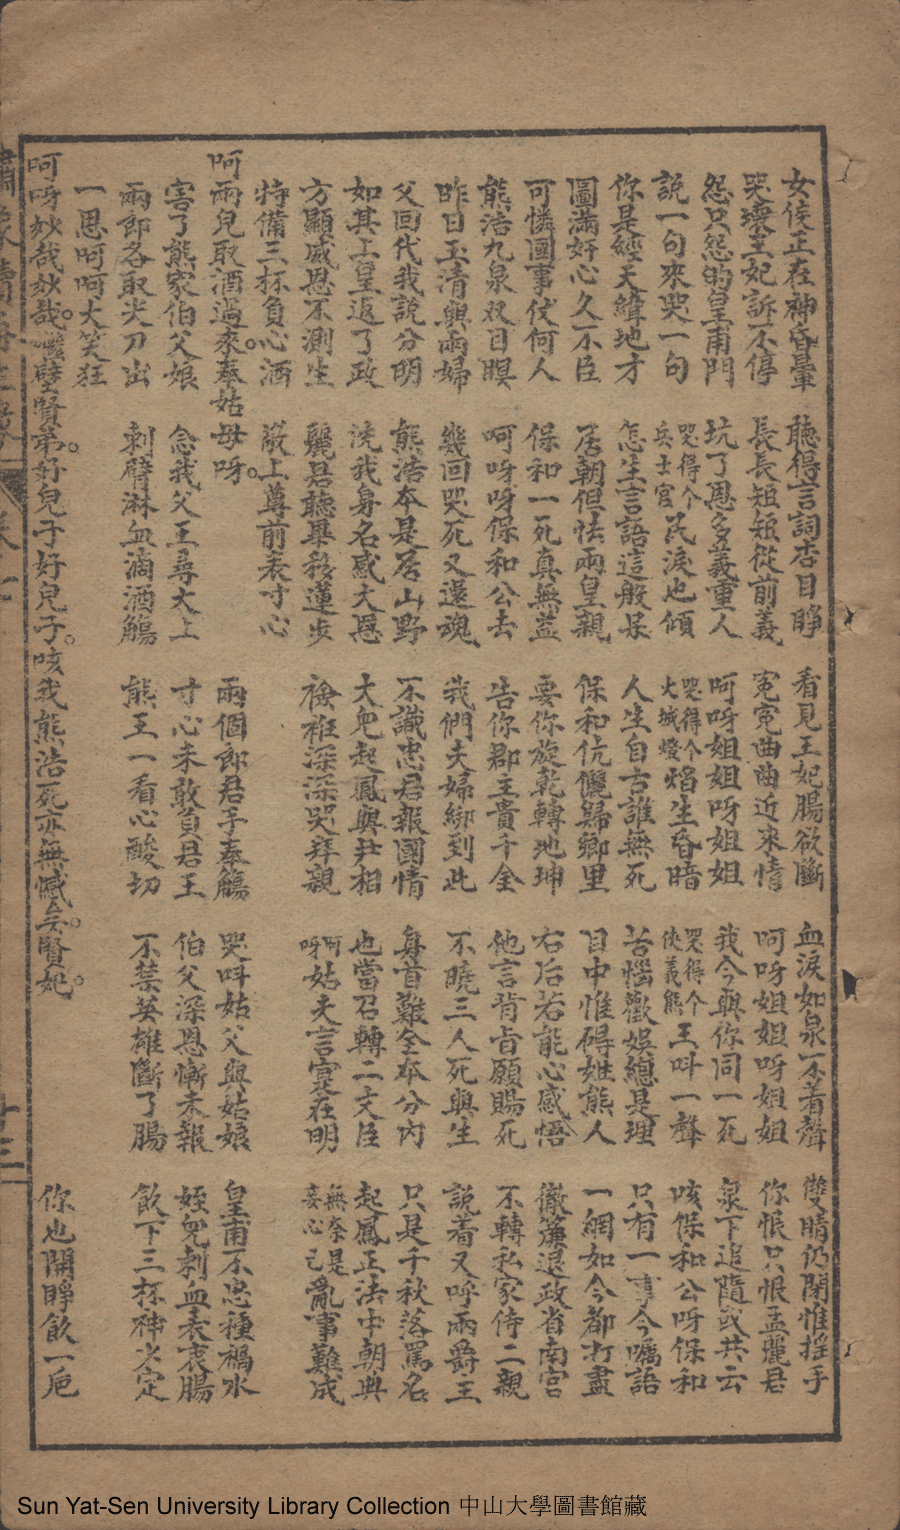 女侯正在神昏暈 聽得言詞杏目睜 看見王妃腸欲斷 血淚如泉不着聲 雙睛仍閉惟搖手
哭壞王妃訴不停 長長短短從前義 冤冤曲曲近來情 呵呀姐姐呀姐姐 你恨只恨孟麗君
怨只怨的皇甫門 坑了恩多義重人 呵呀姐姐呀姐姐 我今與你同一死 泉下追隨或共云
說一句來哭一句 哭得个兵士官民淚也傾 哭得个大城燈焰生昏暗 哭得个俠義熊王叫一聲 咳保和公呀保和
你是經天緯地才 怎生言語這般呆 人生自古誰無死 苦惱歡娛總是理 只有一事今囑語
圖滿奸心久不臣 居朝但怯兩皇親 保和伉儷歸鄉里 目中惟碍姓熊人 一網如今都打盡
可憐國事仗何人 保和一死真無益 要你旋乾轉地珅 右后若能心感悟 徹簾退政省南宮
熊浩九泉双目瞑 呵呀呀保和公去 告你郡主貴千金 他言肯旨願賜死 不轉私家侍二親
昨日玉清與兩婦 幾回哭死又還魂 我們夫婦綁到此 不曉三人死與生 說着又呼兩爵主
父回代我說分明 熊浩本是居山野 不識忠君報國情 身首難全本分內 只是千秋落罵名
如其上皇返了政 洗我身名感大恩 大兜起鳳與尹相 也當召轉二文臣 起鳳正法中朝典
方顯威恩不測生 麗君聽畢移蓮步 襝袵深深哭拜親 呵呀姑夫言寔在明 無奈是妾心已亂事難成
特備三杯負心酒 敬上尊前表寸心
呵兩兒取酒過來。奉姑母呀。 兩個郎君手奉觴 哭叫姑父與姑娘 皇甫不忠種禍水
害了熊家伯父娘 念我父王尋大上 寸心未敢負君王 伯父深恩慚未報 姪兒剌血表衷腸
兩郎各取尖刀出 刺臂淋血滴酒觴 熊王一看心酸切 不禁英雄斷了腸 飲下三杯神少定
一思呵呵大笑狂
呵呀妙哉妙哉。囌壁賢弟。好兒子好兒子。咳我熊浩死亦無憾矣。賢妃。 你也開睜飲一巵
Sun Yat-Sen University Library Collection 中山大學圖書館藏